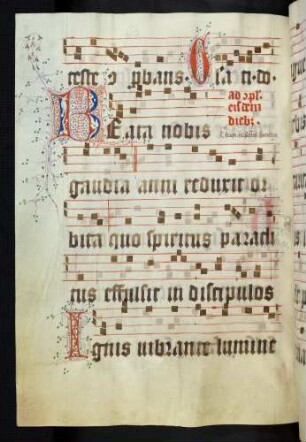 teste ꝓphans. Osa ti do.
ad ꝯpl.
eisdem
diebꝫ.
Beata nobis
gaudia anni reduxit or
bita quo spiritus paracli
tus effulsit in discipulos
Ignis vibrante lumine